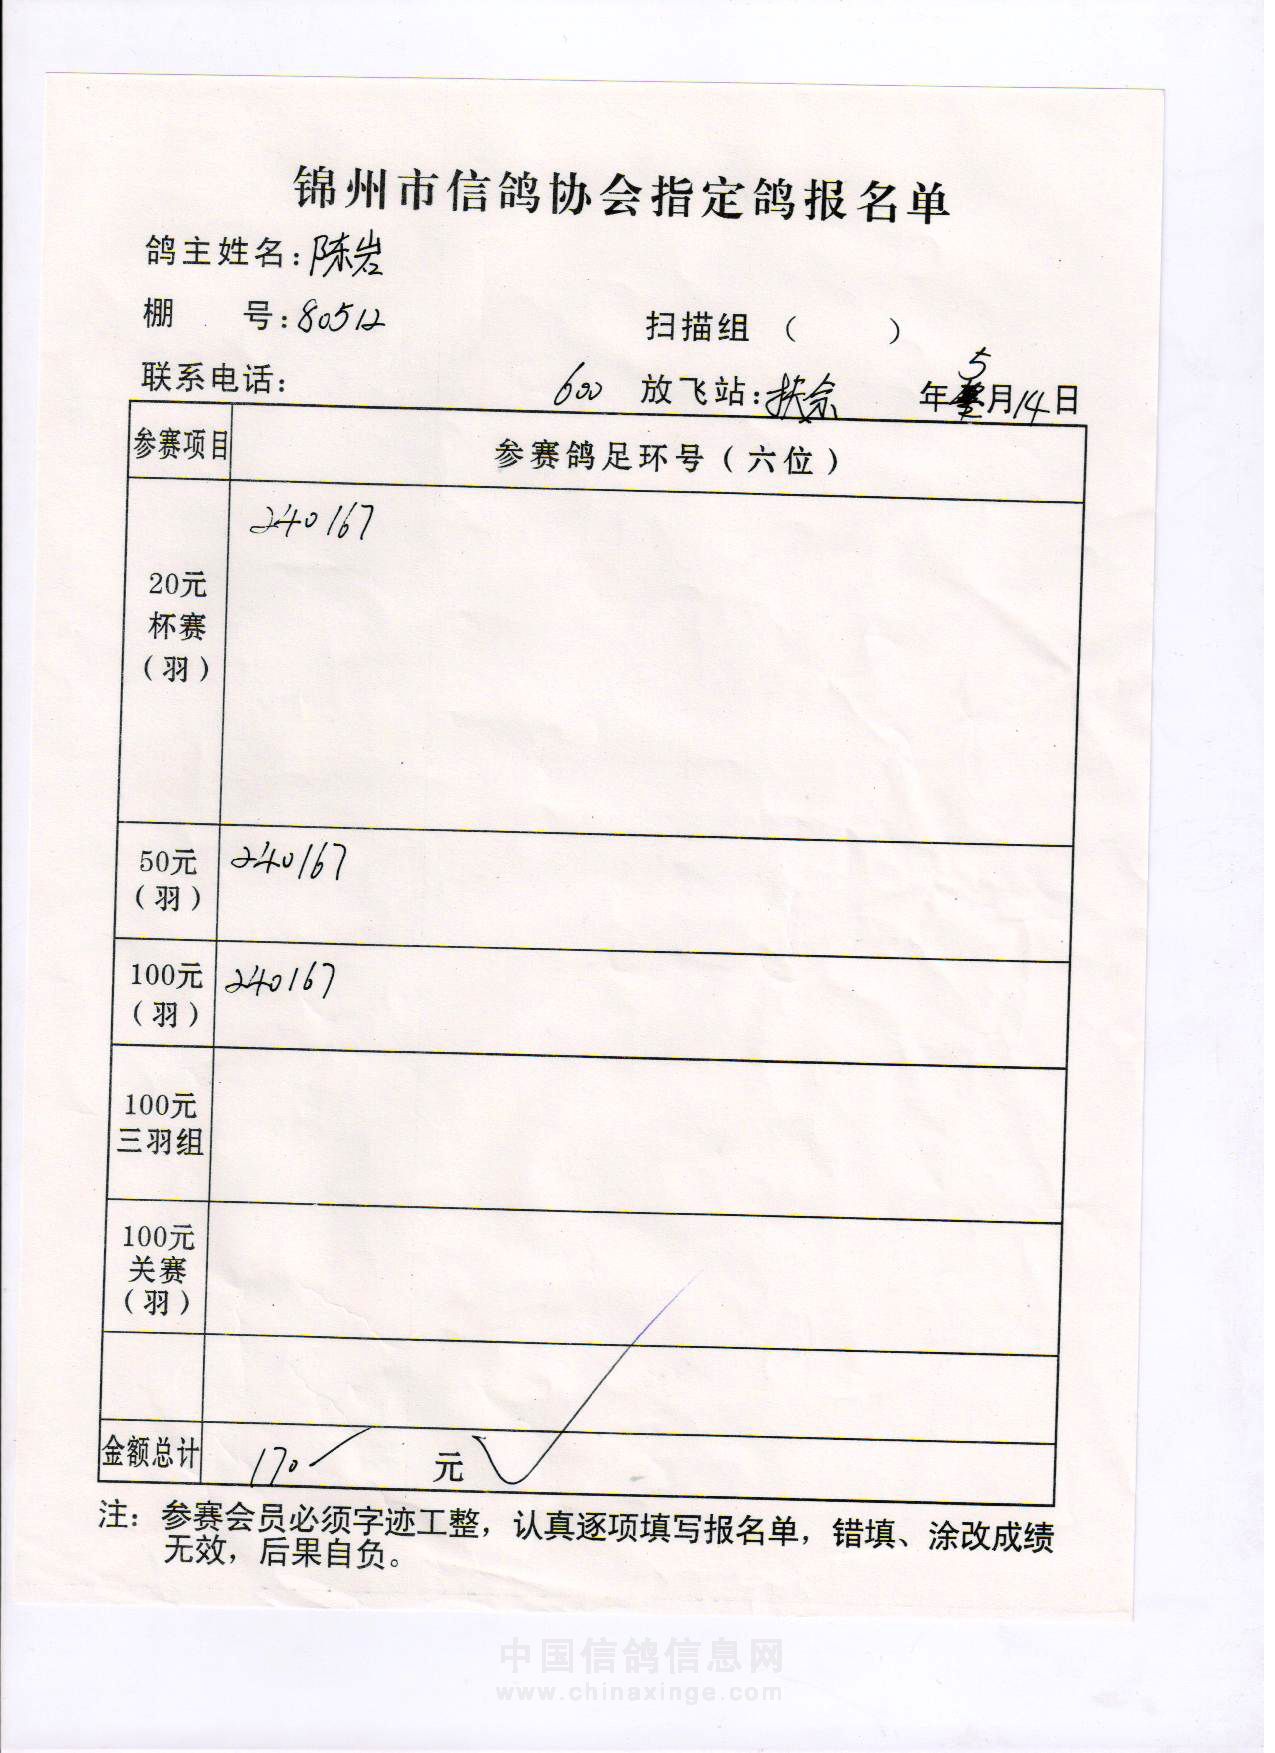 锦州市信鸽协会指定鸽报名单
鸽主姓名：陈岩
棚 号：80512
扫描组 （ ）
联系电话：
600 放飞站：扶余 年5月14日
参赛项目
参赛鸽足环号（六位）
20元
杯赛
（羽）
240167
50元
（羽）
240167
100元
（羽）
240167
100元
三羽组
100元
关赛
（羽）
金额总计
170 元
注：参赛会员必须字迹工整，认真逐项填写报名单，错填、涂改成绩
无效，后果自负。
中国信鸽信息网
www.chinaxinge.com